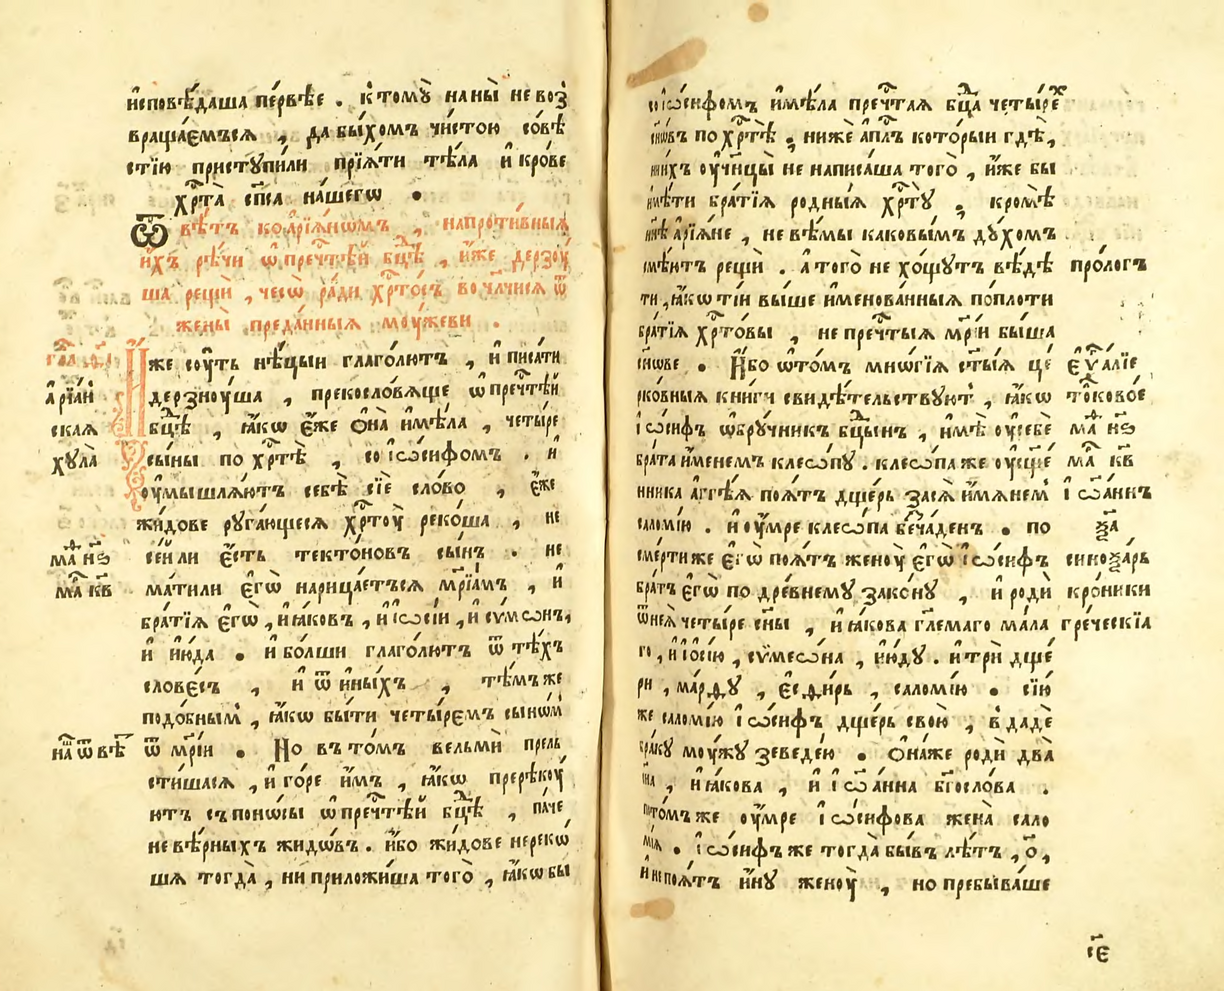 и҆сповѣ́даша пе́рвѣе . к̾томꙋ̀ на ны̀ не воз̾
враща́емъсѧ , да бы́хомъ чи́стою со́вѣ
стїю приступи́ли прїѧ́ти тѣ́ла и҆ кро́ве
хрⷭ҇та̀ сп҃са на́шегѡ .
Ѿвѣ́тъ ко а҆рїѧ́нѡмъ , напроти́вныѧ
и҆́хъ рѣ́чи ѡ҆ пречⷭ҇тѣй бцⷣѣ , и҆́же дерзоу́
ша рещѝ , чесѡ̀ ра́ди хрⷭ҇то́съ во чл҃чисѧ ѿ
жены̀ преда́нныѧ моу́жеви .
И҆́же соу́ть нѣ́цыи глаго́лютъ , и҆ писа́ти
дерзноу́ша , прекосло́вѧще ѡ҆ пречⷭ҇тѣй
бцⷣѣ , ꙗ҆́кѡ є҆́же ѻ҆на̀ и҆мѣ́ла , четы́ре
сы́ны по хрⷭ҇тѣ̀ , со і҆ѡ́сифомъ . и҆
оу҆мышлѧ́ютъ себѣ̀ сїѐ сло́во , є҆́же
жи́дове руга́ющесѧ хрⷭ҇тоу̀ реко́ша , не
се́й ли є҆́сть текто́новъ сы́нъ . не
ма́ти ли є҆гѡ̀ нарица́етъсѧ мр҃їа́мъ , и҆
бра́тїѧ є҆гѡ̀ , и҆ ꙗ҆́ковъ , и҆ і҆ѡсі́и , и҆ сѵ́мѡнъ ,
и҆ и҆ю́да . и҆ бо́лши глаго́лютъ ѿ тѣ́хъ
слове́съ , и҆ ѿ и҆ны́хъ , тѣ́мъ же
подо́бнымъ , ꙗ҆́кѡ бы́ти четы́ремъ сыно́мъ
ѿ мр҃і́и . Но в то́мъ вельмѝ прель
сти́шасѧ , и҆ го́ре и҆̀мъ , ꙗ҆́кѡ пререкоу́
ютъ съ поно́сы ѡ҆ пречⷭ҇тѣй бцⷣѣ , па́че
невѣ́рныхъ жидѡ́въ . и҆́бо жи́дове не реко́
шѧ тогда̀ , ни приложи́ша того̀ , ꙗ҆́кѡ бы
а҆рїа́н
ская
хула̀
маⷴ҇ н҃ѕ
маⷬ҇ к҃в
на ѿвѣⷮ
со і҆ѡ́сифомъ и҆мѣ́ла пречⷭ҇таѧ бцⷣа четы́реⷯ
сн҃ѡ́въ по хрⷭ҇тѣ̀ , нижѐ а҆пⷭ҇лъ кото́рыи гдѣ̀ ,
и҆ни́хъ оу҆чн҃цы̀ не написа́ша того̀ , и҆́же бы
и҆мѣ́ти бра́тїѧ ро́дныѧ хрⷭ҇тꙋ̀ , кромѣ̀
нн҃ѣ а҆рїѧ́не , не вѣ́мы каковы́мъ дꙋ́хомъ
смѣ́ютъ рещѝ . а҆ того̀ не хо́щутъ вѣ́дѣ
ти , ꙗ҆́кѡ ті́и вы́ше и҆менова́нныѧ по пло́ти
бра́тїѧ хрⷭ҇то́вы , не пречⷭ҇тыѧ мр҃і́и бы́ша
сн҃ове . И҆́бо ѡ҆ то́мъ мнѡ́гїѧ ст҃ы́ѧ це́
рко́вныѧ кни́ги свидѣ́тельствуютъ , ꙗ҆́кѡ
і҆ѡ́сифъ ѡ҆брꙋ́чникъ бцⷣынъ , и҆мѣ̀ оу҆ себѐ
бра́та и҆́менемъ клеѻ́пу . клеѻ́па же оу҆ сщ҃е́
нника а҆гге́ѧ поѧ́тъ дще́рь за сѧ̀ и҆́мѧнем̾
саломі́ю . и҆ оу҆́мре клеѻ́па бе́ча́денъ . по
сме́рти же є҆гѡ̀ поѧ́тъ женоу̀ є҆гѡ̀ і҆ѡ́сифъ
бра́тъ є҆гѡ̀ по дре́внему зако́ну , и҆ родѝ
ѿ неѧ̀ четы́ре сн҃ы , и҆ ꙗ҆́кова гл҃емаго ма́ла
го , и҆ і҆о́сїю , сѵмео́на , и҆ю́дꙋ . и҆ трѝ дще́
ри , ма́рѳꙋ , є҆сѳи́рь , саломі́ю . сїю
же саломі́ю і҆ѡ́сифъ дще́рь свою̀ , в̾дадѐ
бра́ку моу́жꙋ зеведе́ю . Ѻ҆на́же родѝ два̀
сн҃а , и҆ ꙗ҆́кова , и҆ і҆ѡа́нна бг҃осло́ва .
пото́мъ же оу҆́мре і҆ѡ́сифова жена̀ сало
мі́ѧ . і҆ѡ́сифъ же тогда̀ бы́въ лѣ́тъ , о҃ ,
и҆ не поѧ́тъ и҆́нꙋ женоу̀ , но пребыва́ше
проло́гъ
є҆ѵⷢ҇алїе
то́ково́е
маⷴ҇ н҃ѕ
маⷬ҇ к҃в
і҆ѡа́ннъ
ѯ҃а
синоѯа́рь
кро́ники
гре́ческїѧ
с҃є